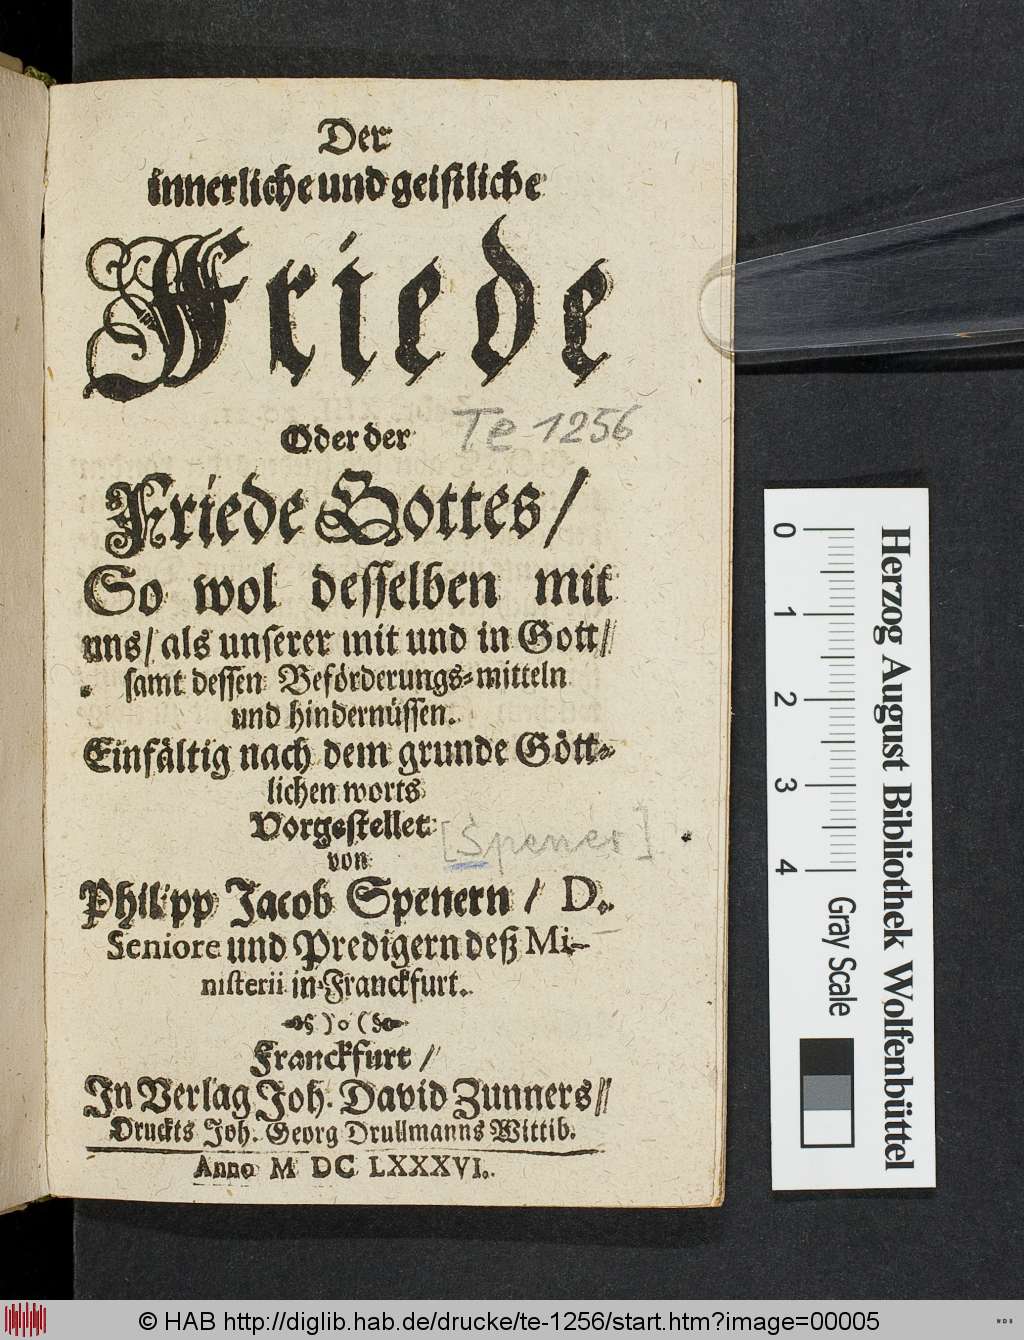 Der
innerliche und geistliche
Friede
Oder der
Te 1256
Friede Gottes /
So wol desselben mit
uns / als unserer mit und in Gott /
samt dessen Beförderungs-mitteln
und hindernüssen.
Einfältig nach dem grunde Gött-
lichen worts
Vorgestellet
[Spener]
von
Philipp Jacob Spenern / D.
Seniore und Predigern deß Mi-
nisterii in Franckfurt.
)o(
Franckfurt /
In Verlag Joh. David Zunners /
Druckts Joh. Georg Drullmanns Wittib.
Anno M DC LXXXVI.
0 1 2 3 4
Herzog August Bibliothek Wolfenbüttel
Gray Scale
© HAB http://diglib.hab.de/drucke/te-1256/start.htm?image=00005